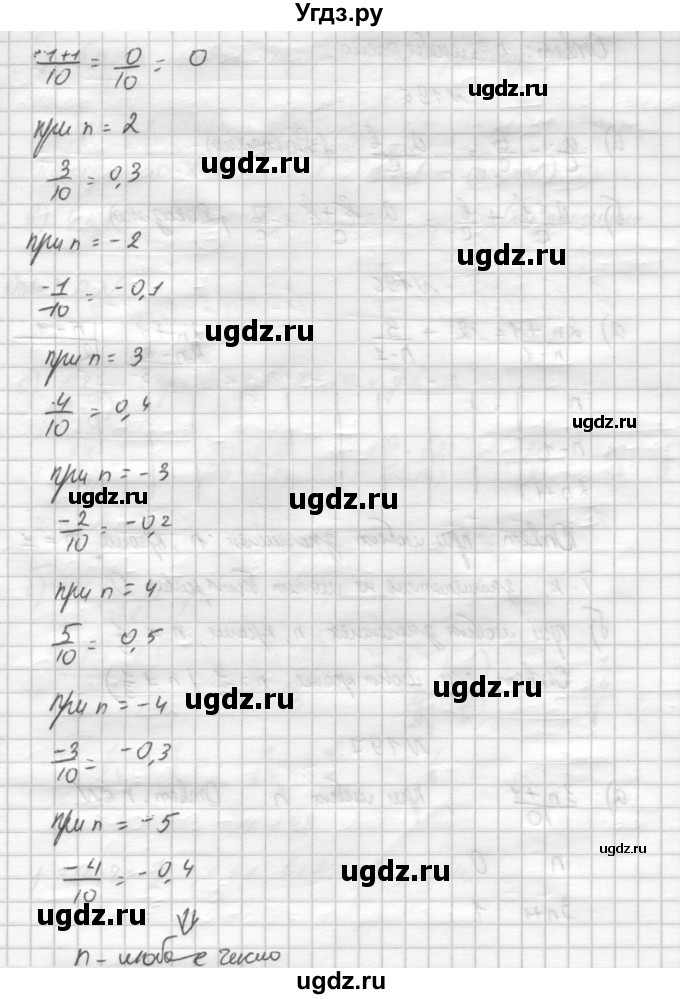 Угдз.ру
-1+1/10 = 0/10 = 0
ugdz.ru
при n = 2
ugdz.ru
3/10 = 0,3
при n = -2
ugdz.ru
-1/10 = -0,1
ugdz.ru
при n = 3
4/10 = 0,4
ugdz.ru
при n = -3
ugdz.ru ugdz.ru
-2/10 = -0,2
при n = 4
5/10 = 0,5
ugdz.ru
при n = -4 ugdz.ru
-3/10 = -0,3
при n = -5
ugdz.ru
-4/10 = -0,4
ugdz.ru
ugdz.ru
⇓
n - любое число
ugdz.ru